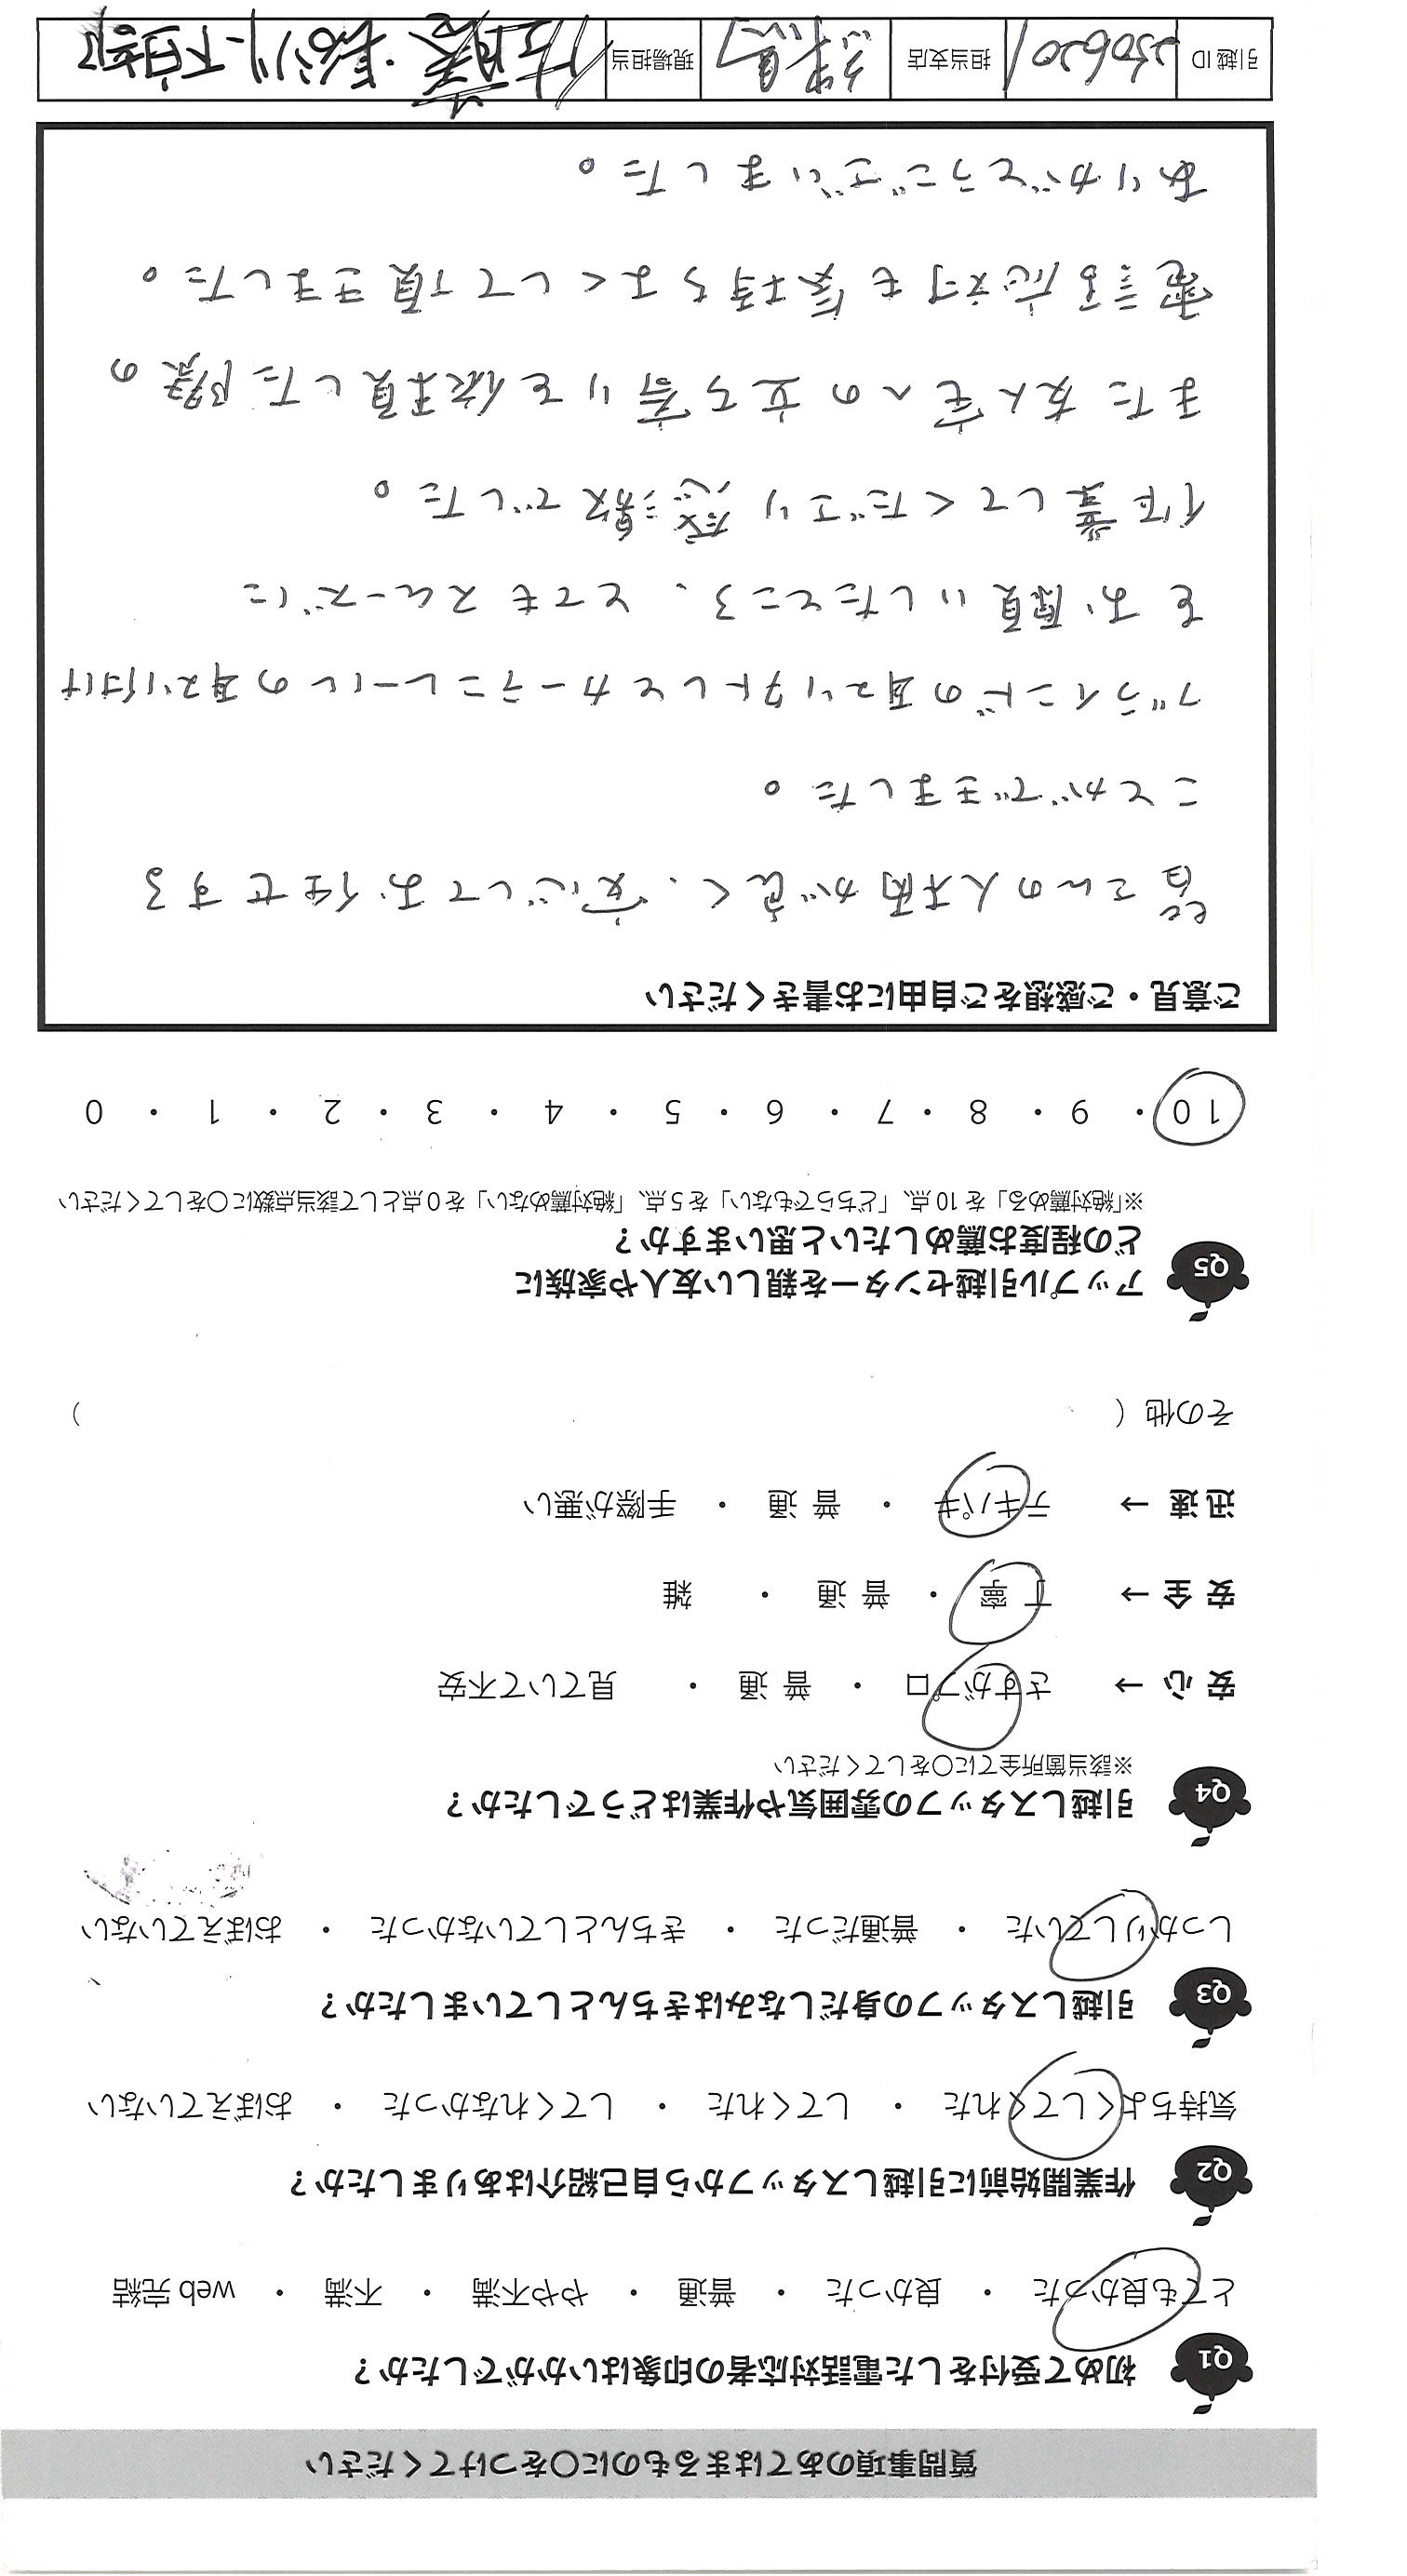 質問事項のあてはまるものに○をつけてください
Q1 初めて受付をした電話対応者の印象はいかがでしたか？
とても良かった ・ 良かった ・ 普通 ・ やや不満 ・ 不満 ・ web 完結
Q2 作業開始前に引越しスタッフから自己紹介はありましたか？
気持ちよくしてくれた ・ してくれた ・ してくれなかった ・ おぼえていない
Q3 引越しスタッフの身だしなみはきちんとしていましたか？
しっかりしていた ・ 普通だった ・ きちんとしていなかった ・ おぼえていない
Q4 引越しスタッフの雰囲気や作業はどうでしたか？
※該当箇所全てに○をしてください
安 心 → さすがプロ ・ 普 通 ・ 見ていて不安
安 全 → 丁 寧 ・ 普 通 ・ 雑
迅 速 → テキパキ ・ 普 通 ・ 手際が悪い
その他 （ ）
Q5 アップル引越センターを親しい友人や家族に
どの程度お薦めしたいと思いますか？
※「絶対薦める」を 10 点、「どちらでもない」を 5 点、「絶対薦めない」を 0 点として該当点数に○をしてください
10 ・ 9 ・ 8 ・ 7 ・ 6 ・ 5 ・ 4 ・ 3 ・ 2 ・ 1 ・ 0
ご意見・ご感想をご自由にお書きください
皆さんの人柄が良く、安心してお任せする
ことができました。
ブラインドの取り外しとカーテンレールの取り付け
をお願いしたところ、とてもスムーズに
作業してくださり感激でした。
また友人宅への立ち寄りを依頼した際の
電話応対も気持ちよくして頂きました。
ありがとうございました。
引越 ID 2506201 担当支店 練馬 現場担当 佐藤・長谷川・下白部